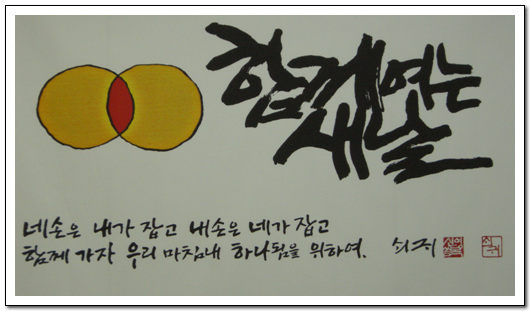 함께 여는
새날
네 손은 내가 잡고 내 손은 네가 잡고
함께 가자 우리 마침내 하나됨을 위하여.
쇠귀